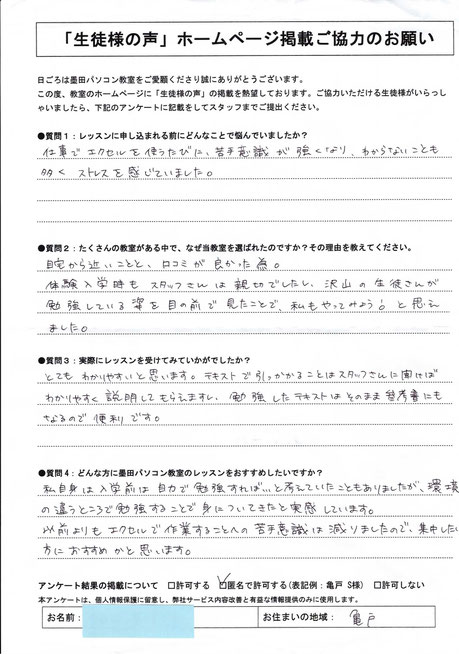 「生徒様の声」ホームページ掲載ご協力のお願い
日ごろは墨田パソコン教室をご愛顧くださり誠にありがとうございます。
この度、教室のホームページに「生徒様の声」の掲載を熱望しております。ご協力いただける生徒様がいらっし
ゃいましたら、下記のアンケートに記載をしてスタッフまでご提出ください。
●質問1:レッスンに申し込まれる前にどんなことで悩んでいましたか?
仕事でエクセルを使うたびに、苦手意識が強くなり、わからないことも
多くストレスを感じていました。
●質問2:たくさんの教室がある中で、なぜ当教室を選ばれたのですか?その理由を教えてください。
自宅から近いことと、口コミが良かった為。
体験入学時もスタッフさんは親切でしたし、沢山の生徒さんが
勉強している姿を目の前で見たことで、私もやってみよう!と思え
ました。
●質問3:実際にレッスンを受けてみていかがでしたか?
とてもわかりやすいと思います。テキストで引っかかることはスタッフさんに聞けば
わかりやすく説明してもらえますし、勉強したテキストはそのまま参考書にも
なるので便利です。
●質問4:どんな方に墨田パソコン教室のレッスンをおすすめしたいですか?
私自身は入学前は自力で勉強すればいいと考えていたこともありましたが、環境
の違うところで勉強することで身についてきたと実感しています。
以前よりもエクセルで作業することへの苦手意識は減りましたので、集中したい
方におすすめかと思います。
アンケート結果の掲載について □許可する ☑匿名で許可する(表記例:亀戸 S様) □許可しない
本アンケートは、個人情報保護に留意し、弊社サービス内容改善と有益な情報提供のみに使用します。
お名前: お住まいの地域: 亀戸